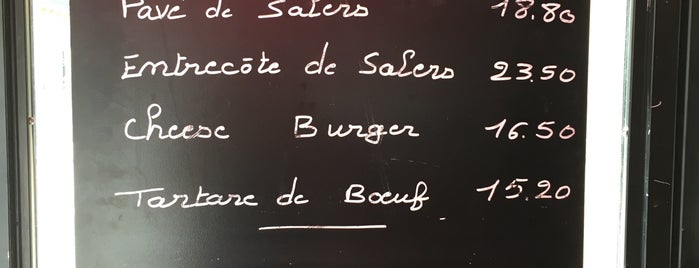 Pavé de Salers 18.80
Entrecôte de Salers 23.50
Cheese Burger 16.50
Tartare de Bœuf 15.20